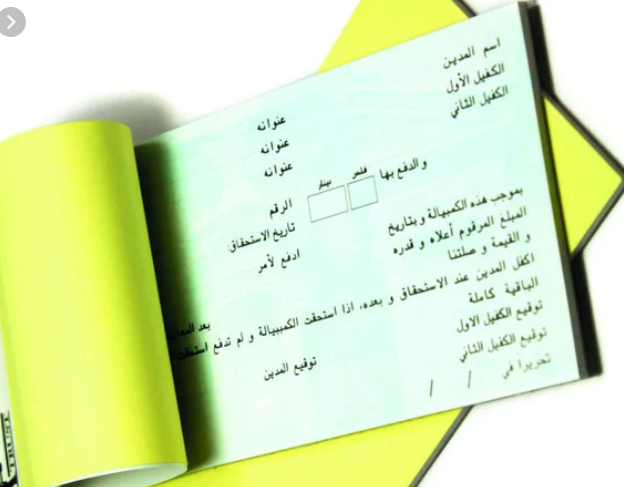 اسم المدين عنوانه
الكفيل الأول عنوانه
الكفيل الثاني عنوانه
والدفع بها فلس دينار الرقم
تاريخ الاستحقاق:
بموجب هذه الكمبيالة وبتاريخ ادفع لأمر
المبلغ المرقوم أعلاه و قدره
و القيمة و صلتنا بعد
اكفل المدين عند الاستحقاق و بعده، اذا استحقت الكمبيالة و لم تدفع استحقت
الباقية كاملة
توقيع الكفيل الاول توقيع المدين
توقيع الكفيل الثاني
تحريراً في / /
TRUST